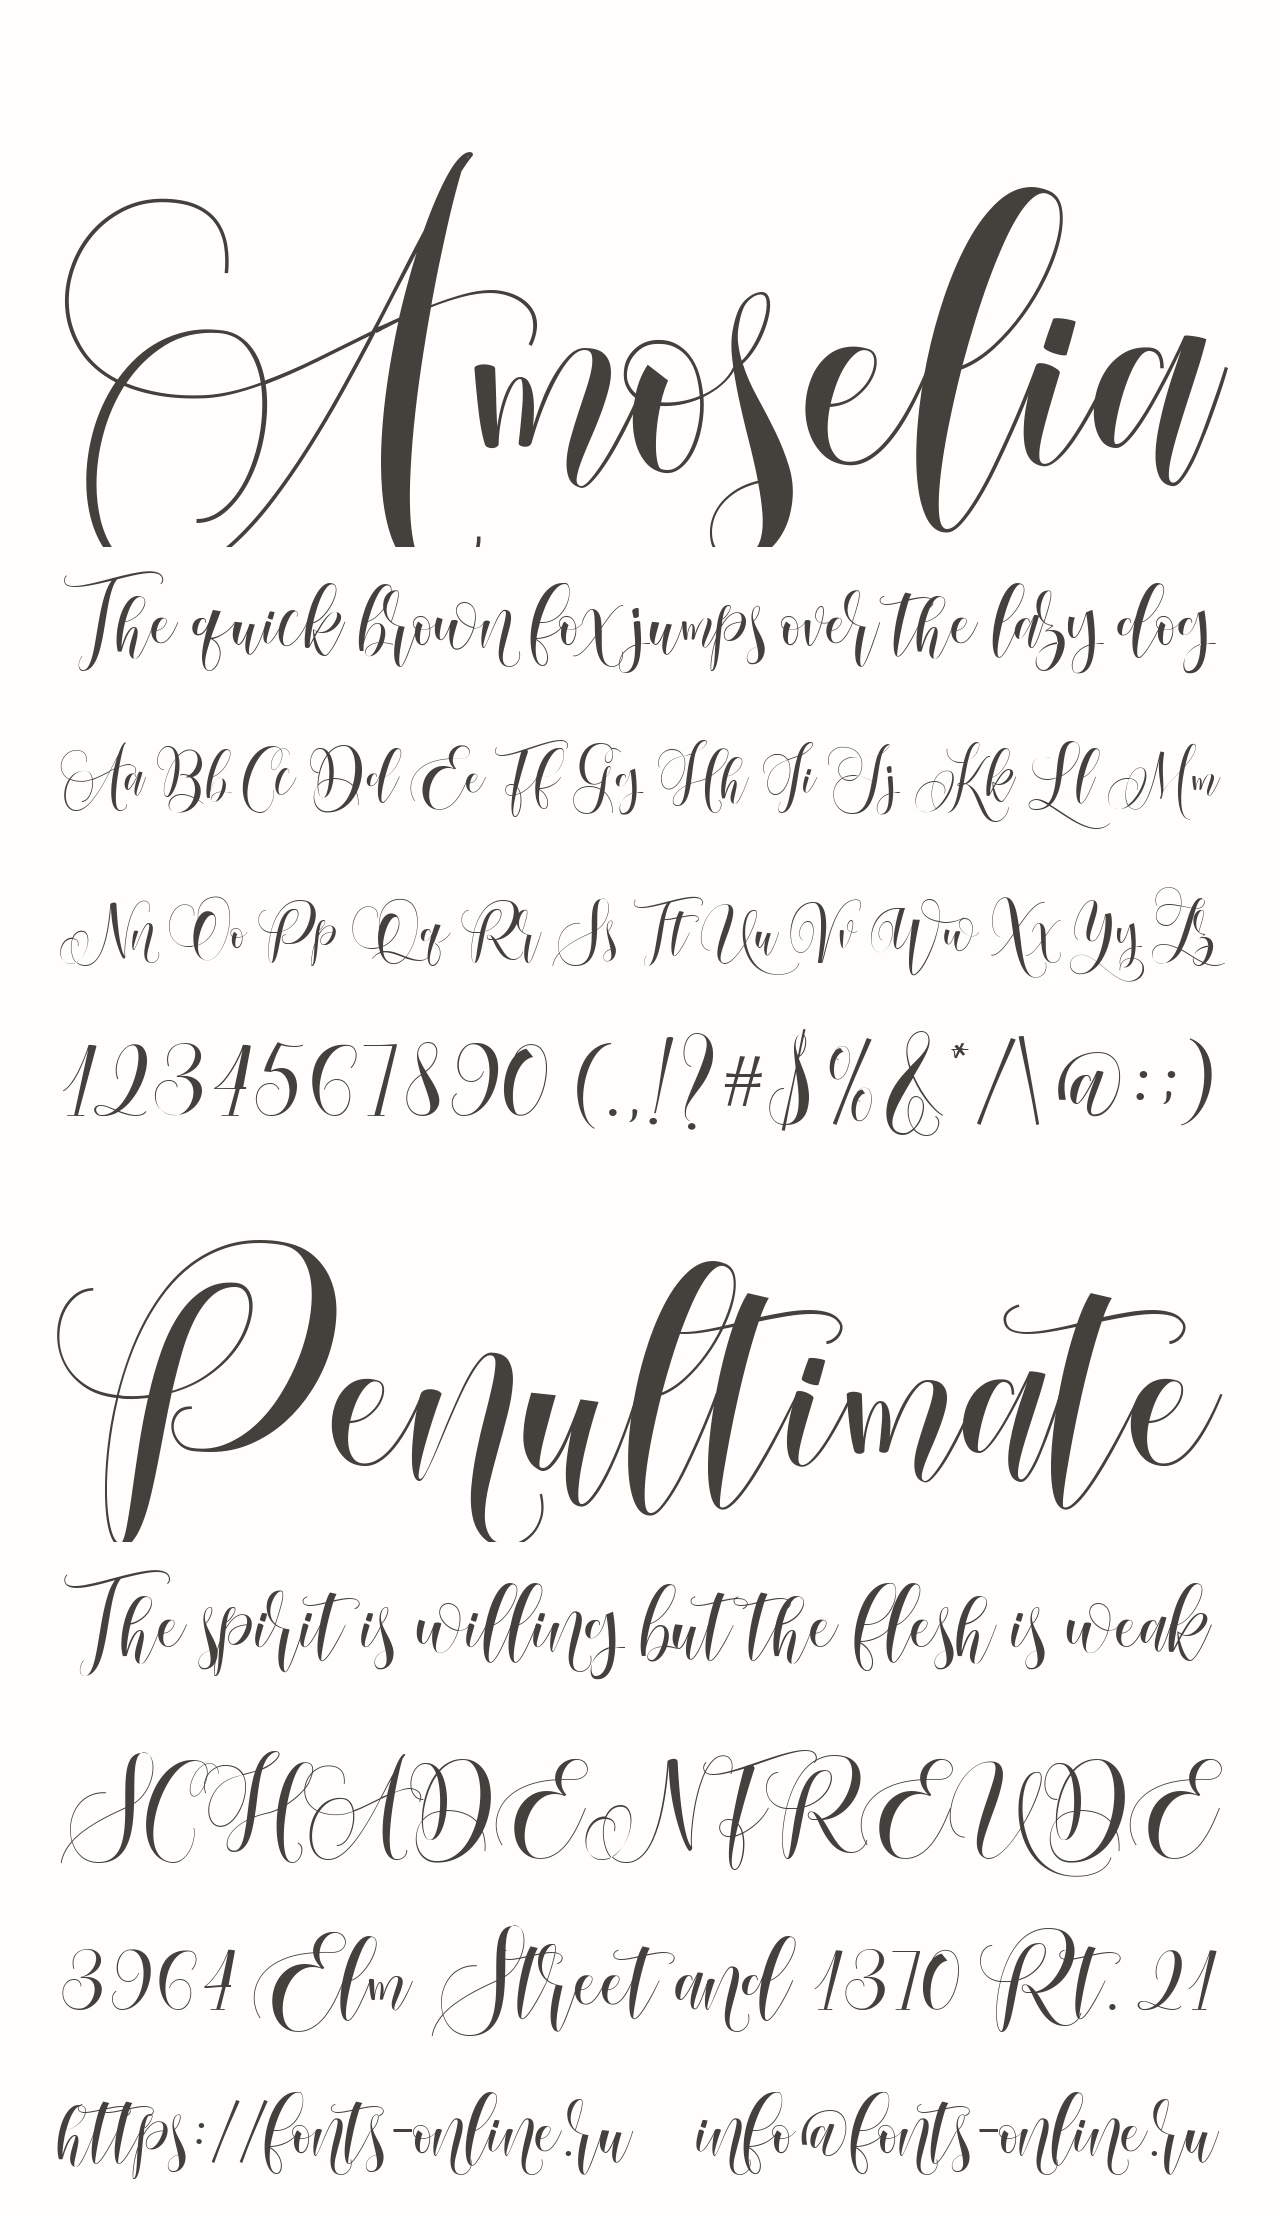 Amoselia
The quick brown fox jumps over the lazy dog
Aa Bb Cc Dd Ee Ff Gg Hh Ii Jj Kk Ll Mm
Nn Oo Pp Qq Rr Ss Tt Uu Vv Ww Xx Yy Zz
1234567890 (.,!?#$%&*/\@:;)
Penultimate
The spirit is willing but the flesh is weak
SCHADENFREUDE
3964 Elm Street and 1370 Rt. 21
https://fonts-online.ru info@fonts-online.ru